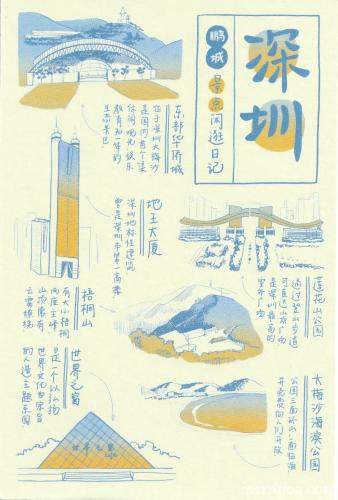 深圳
鹏城
景点闲逛日记
东部华侨城
位于深圳大梅沙
是国内首个集
休闲、观光、娱乐
教育为一体的
生态景区
地王大厦
深圳地标性建筑
曾是深圳市第一高楼
莲花山公园
通过登山步道
可直达山顶广场
是深圳最高的
室外广场
梧桐山
有大小梧桐
两座主峰
山顶常有
云雾缭绕
世界之窗
是一个以弘扬
世界文化为宗旨
的人造主题乐园
世界之窗
大梅沙海滨公园
公园三面环山一面临海
并免费向人们开放